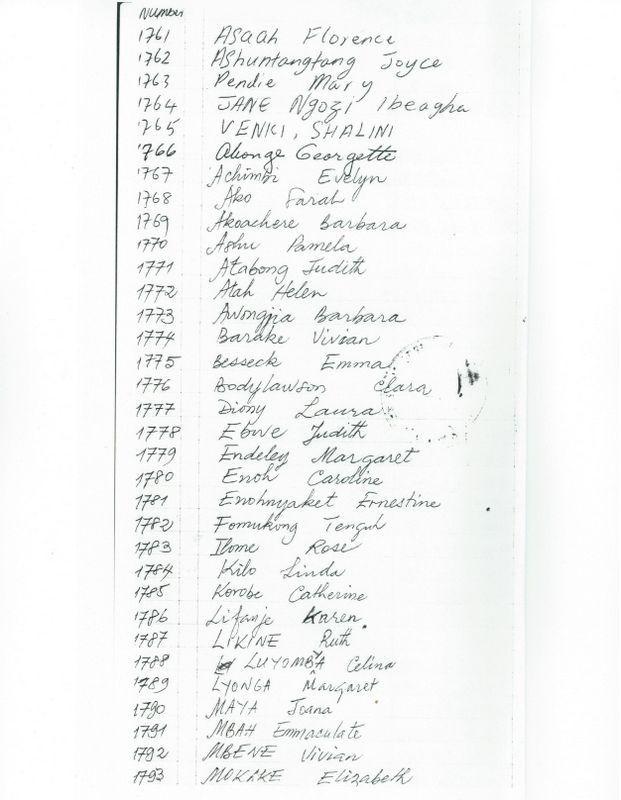 Number
1761 Asaah Florence
1762 Ashuntangtang Joyce
1763 Pendie Mary
1764 JANE Ngozi Ibeagha
1765 VENKI, SHALINI
1766 Georgette
1767 Achimbi Evelyn
1768 Ako Sarah
1769 Akoachere Barbara
1770 Ashu Pamela
1771 Atabong Judith
1772 Atah Helen
1773 Awongjia Barbara
1774 Barake Vivian
1775 Besseck Emma
1776 Bodylawson Clara
1777 Diony Laura
1778 Ebwe Judith
1779 Endeley Margaret
1780 Enoh Caroline
1781 Enohnyaket Ernestine
1782 Fomukong Tenguh
1783 Ilome Rose
1784 Kilo Linda
1785 Korobe Catherine
1786 Lifanje Karen
1787 LIKINE Ruth
1788 LUYOMBA Celina
1789 LYONGA Margaret
1790 MAYA Joana
1791 MBAH Emmaculate
1792 MBENE Vivian
1793 MOKAKE Elizabeth